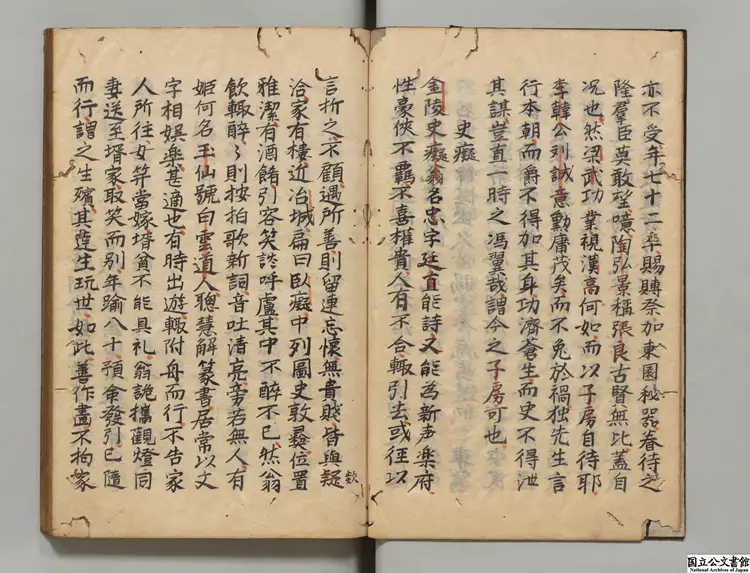 亦不受年七十二卒賜賻祭加東園秘器眷待之
隆羣臣莫敢望噫陶弘景稱張良古賢無比蓋自
况也然梁武功業視漢高何如而以子房自待耶
李韓公刘誠意勳庸茂矣而不免於禍独先生言
行本朝而爵不得加其身功濟蒼生而史不得泄
其謀豈直一時之馮翼哉謂今之子房可也
史癡
金陵史癡翁名忠字廷直能詩又能為新声楽府
性豪俠不羈不喜權貴人有不合輒引去或徑以
言折之不顧遇所善則留連忘懷無貴賤皆與疑
欵
洽家有樓近冶城扁曰臥癡中列圖史敦彝位置
雅潔有酒餚引客笑談呼盧其中不醉不已然翁
飲輒醉〻則按拍歌新詞音吐清亮旁若無人有
姬何名玉仙號白雲道人聰慧解篆書居常以文
字相娯樂甚適也有時出遊輒附舟而行不告家
人所往女笄當嫁壻貧不能具礼翁詭攜觀燈同
妻送至壻家取笑而別年踰八十預命發引已隨
而行謂之生殯其達生玩世如此善作畫不拘家
国立公文書館
National Archives of Japan